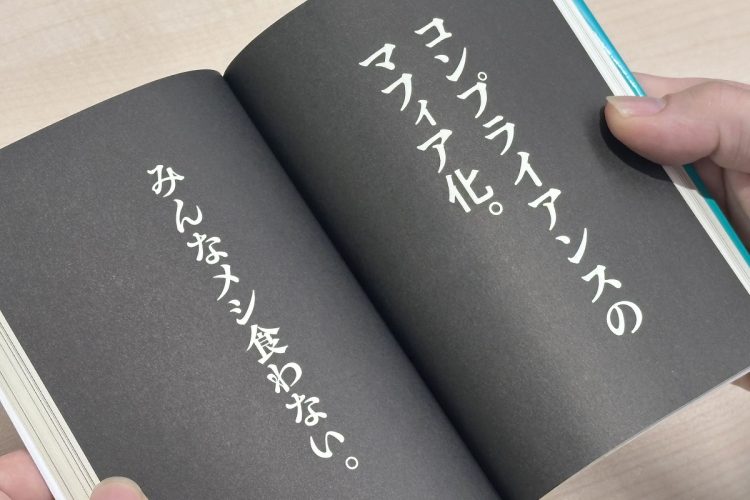 コンプライアンスの
マフィア化。
みんなメシ食わない。